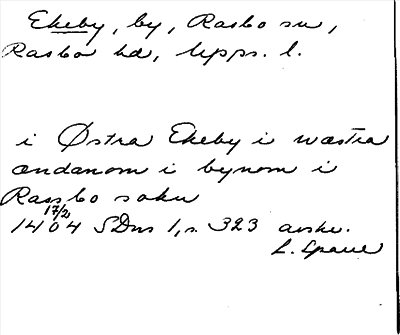 Ekeby, by, Rasbo sn,
Rasbo hd, Upps. l.
i Østra Ekeby i wæstra
ændanom i bynom i
Rassbo sokn
14 17/2 04 SDns 1, s. 323 avskr.